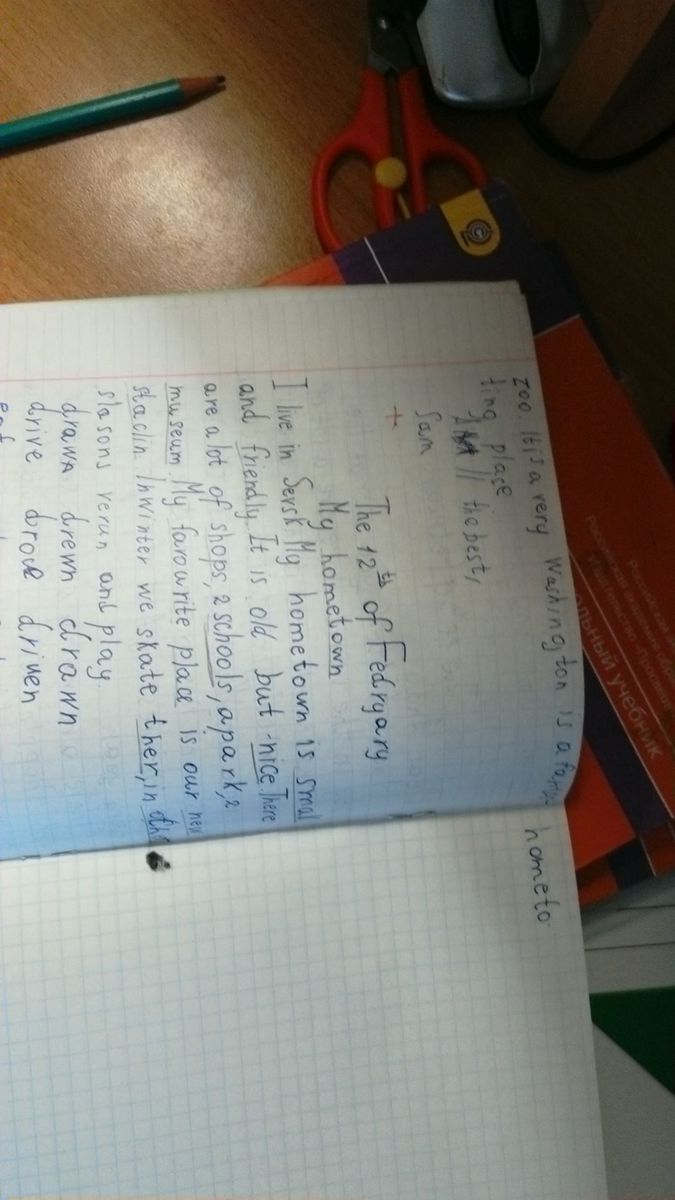 zoo. It is a very Washington is a
ting plase
All the best,
Sam
+
The 12th of Fedryary
My hometown
I live in Sevsk. My hometown is smal
and friendly. It is old but nice. There
are a lot of shops, 2 schools, a park, 2
museum. My farourite place is our new
stadin. Inwinter we skate ther, in
slasons verun and play
drawn drewn drawn
drive drove driven
hometo
льный учебник